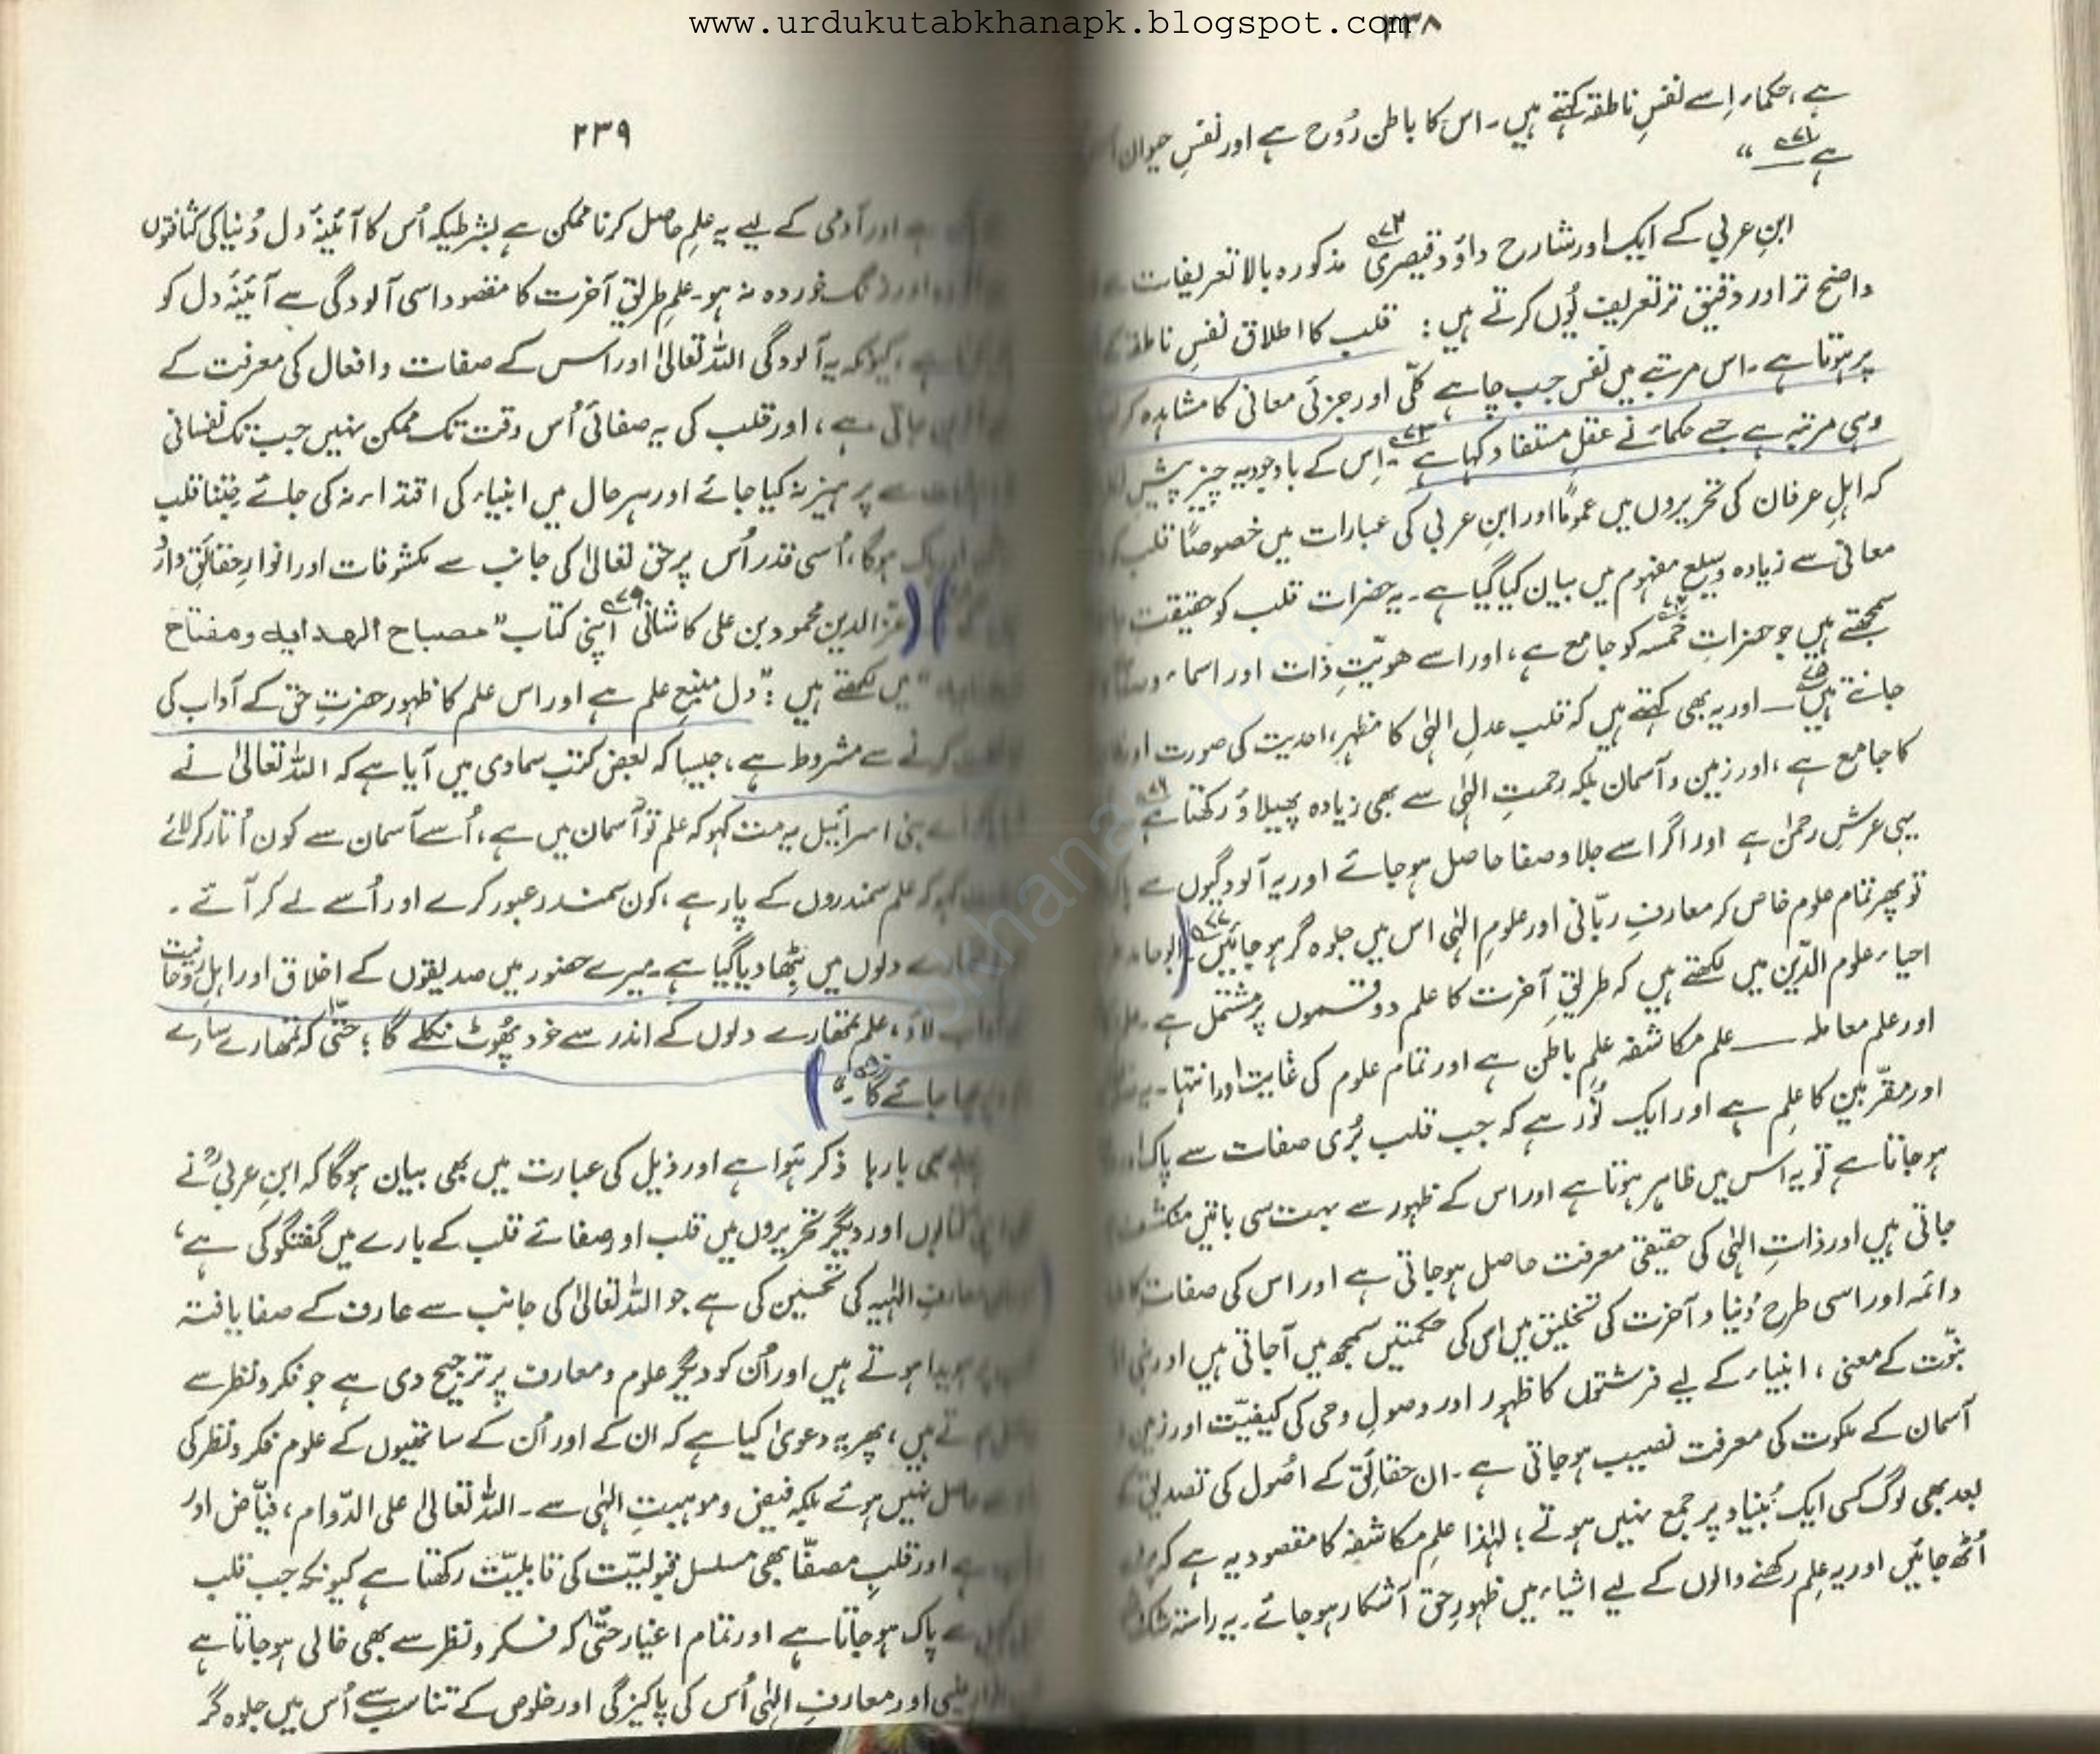 www.urdukutabkhanapk.blogspot.com
۲۳۸
ہے، حکماء اِسے نفسِ ناطقہ کہتے ہیں۔ اس کا باطن رُوح ہے اور نفسِ حیوان
ہے "
ابنِ عربی کے ایک اور شارح داؤد قیصری مذکورہ بالا تعریفات سے
واضح تر اور دقیق تر تعریف یُوں کرتے ہیں: قلب کا اطلاق نفسِ ناطقہ کے
پر ہوتا ہے۔ اس مرتبے میں نفس جب چاہے کلّی اور جزئی معانی کا مشاہدہ کر
وہی مرتبہ ہے جسے حکماء نے عقلِ مستفاد کہا ہے۔ اِس کے باوجود یہ چیز پیشِ
کہ اہلِ عرفان کی تحریروں میں عموماً اور ابنِ عربی کی عبارات میں خصوصاً قلب کو
معانی سے زیادہ وسیع مفہوم میں بیان کیا گیا ہے۔ یہ حضرات قلب کو حقیقت
سمجھتے ہیں جو حضراتِ خمسہ کو جامع ہے، اور اسے ھویّتِ ذات اور اسماء و
جانتے ہیں — اور یہ بھی کہتے ہیں کہ قلب عدلِ الہٰی کا مظہر، احدیت کی صورت اور
کا جامع ہے، اور زمین و آسمان بلکہ رحمتِ الہٰی سے بھی زیادہ پھیلاؤ رکھتا ہے
یہی عرشِ رحمٰن ہے اور اگر اسے جلا و صفا حاصل ہو جائے اور یہ آلودگیوں سے
تو پھر تمام علوم خاص کر معارفِ ربّانی اور علومِ الہٰی اس میں جلوہ گر ہو جائیں۔ (ابو حامد
احیاء علوم الدّین میں لکھتے ہیں کہ طریقِ آخرت کا علم دو قسموں پر مشتمل ہے۔
اور علم معاملہ — علم مکاشفہ علمِ باطن ہے اور تمام علوم کی غایت اور انتہا۔ یہ
اور مقرّبین کا علم ہے اور ایک نُور ہے کہ جب قلب بُری صفات سے پاک
ہو جاتا ہے تو یہ اس میں ظاہر ہوتا ہے اور اس کے ظہور سے بہت سی باتیں منکشف
جاتی ہیں اور ذاتِ الہٰی کی حقیقی معرفت حاصل ہو جاتی ہے اور اس کی صفات
دائمہ اور اسی طرح دُنیا و آخرت کی تخلیق میں اس کی حکمتیں سمجھ میں آ جاتی ہیں اور
نبوّت کے معنی، انبیاء کے لیے فرشتوں کا ظہور اور وصولِ وحی کی کیفیّت اور زمین
آسمان کے ملکوت کی معرفت نصیب ہو جاتی ہے۔ ان حقائق کے اصُول کی تصدیق
بعد بھی لوگ کسی ایک بُنیاد پر جمع نہیں ہوتے؛ لہٰذا علمِ مکاشفہ کا مقصود یہ ہے کہ
اُٹھ جائیں اور یہ علم رکھنے والوں کے لیے اشیاء میں ظہورِ حق آشکار ہو جائے۔ یہ راستہ
۲۳۹
ہے اور آدمی کے لیے یہ علم حاصل کرنا ممکن ہے بشرطیکہ اُس کا آئینۂ دل دُنیا کی کثافتوں
اور زنگ خوردہ نہ ہو۔ علمِ طریقِ آخرت کا مقصود اسی آلودگی سے آئینۂ دل کو
ہے، کیونکہ یہ آلودگی اللہ تعالیٰ اور اس کے صفات و افعال کی معرفت کے
جاتی ہے، اور قلب کی یہ صفائی اُس وقت تک ممکن نہیں جب تک نفسانی
سے پرہیز نہ کیا جائے اور ہر حال میں انبیاء کی اقتداء نہ کی جائے جتنا قلب
اور پاک ہوگا، اُسی قدر اُس پر حق تعالیٰ کی جانب سے مکشوفات اور انوارِ حقائق وارد
(عزّ الدین محمود بن علی کاشانی اپنی کتاب "مصباح الھدایہ و مفتاح
" میں لکھتے ہیں: "دل منبعِ علم ہے اور اس علم کا ظہور حضرتِ حق کے آداب کی
کرنے سے مشروط ہے، جیسا کہ بعض کتبِ سماوی میں آیا ہے کہ اللہ تعالیٰ نے
اے بنی اسرائیل یہ مت کہو کہ علم تو آسمان میں ہے، اُسے آسمان سے کون اُتار کر لائے
کہو کہ علم سمندروں کے پار ہے، کون سمندر عبور کرے اور اُسے لے کر آئے۔
دلوں میں بِٹھا دیا گیا ہے۔ میرے حضور میں صدیقوں کے اخلاق اور اہلِ روحانیت
آداب لاؤ، علم تمھارے دلوں کے اندر سے خود پھُوٹ نکلے گا؛ حتّیٰ کہ تمھارے سارے
چھا جائے گا۔")
بھی بارہا ذکر ہُوا ہے اور ذیل کی عبارت میں بھی بیان ہوگا کہ ابنِ عربیؒ نے
کتابوں اور دیگر تحریروں میں قلب اور صفائے قلب کے بارے میں گفتگو کی ہے،
معارفِ الہٰیہ کی تحسین کی ہے جو اللہ تعالیٰ کی جانب سے عارف کے صفا یافتہ
ہویدا ہوتے ہیں اور اُن کو دیگر علوم و معارف پر ترجیح دی ہے جو فکر و نظر سے
ہوتے ہیں، پھر یہ دعویٰ کیا ہے کہ ان کے اور اُن کے ساتھیوں کے علوم فکر و نظر کی
سے حاصل نہیں ہوئے بلکہ فیض و موہبتِ الہٰی سے۔ اللہ تعالیٰ علی الدّوام، فیّاض اور
ہے اور قلبِ مصفّا بھی مسلسل قبولیّت کی قابلیّت رکھتا ہے کیونکہ جب قلب
سے پاک ہو جاتا ہے اور تمام اغیار حتّیٰ کہ فکر و نظر سے بھی خالی ہو جاتا ہے
اور معارفِ الہٰی اُس کی پاکیزگی اور خلوص کے تناسب سے اُس میں جلوہ گر